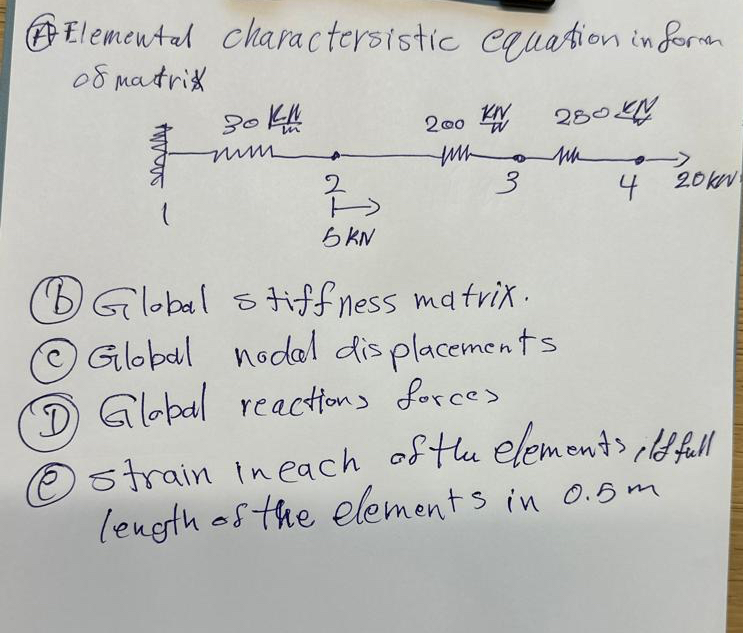 Ⓐ Elemental charactersistic equation in form
of matrix
30 KN/m 200 KN/m 250 KN/m
1 2 3 4 20KN
5 KN
ⓑ Global stiffness matrix.
ⓒ Global nodal displacements
Ⓓ Global reactions forces
ⓔ strain in each of the elements, if full
length of the elements in 0.5 m